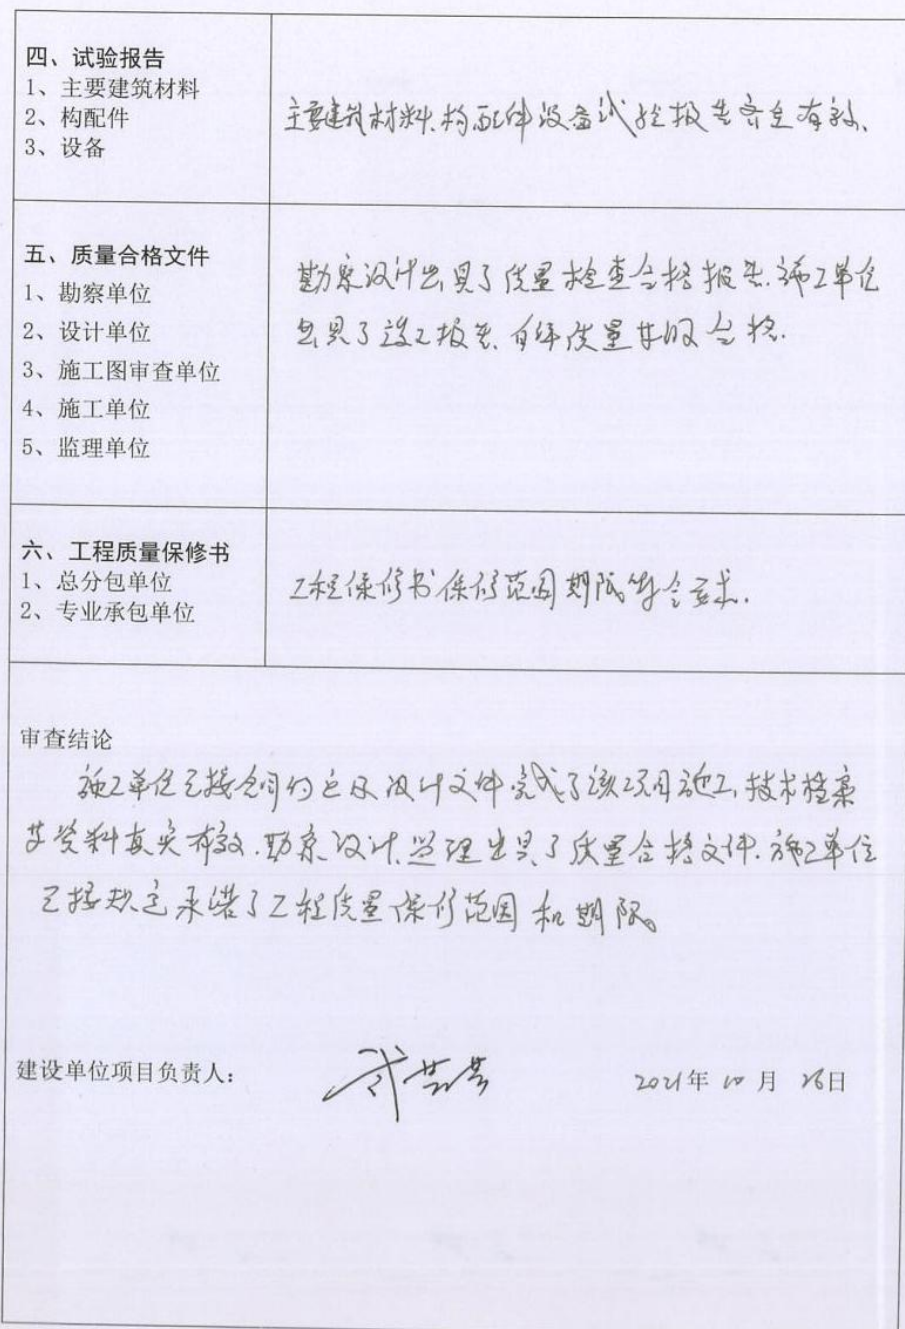 四、试验报告
1、主要建筑材料
2、构配件
3、设备
主要建筑材料、构配件设备试验报告齐全有效、
五、质量合格文件
1、勘察单位
2、设计单位
3、施工图审查单位
4、施工单位
5、监理单位
勘察设计出具了质量检查合格报告.施工单位
出具了竣工报告.自评质量等级合格.
六、工程质量保修书
1、总分包单位
2、专业承包单位
工程保修书保修范围期限符合要求.
审查结论
施工单位已按合同约定及设计文件完成了该项目施工,技术档案
资料真实有效.勘察、设计、监理出具了质量合格文件.施工单位
已按规定承诺了工程质量保修范围和期限。
建设单位项目负责人:
2021年10月26日